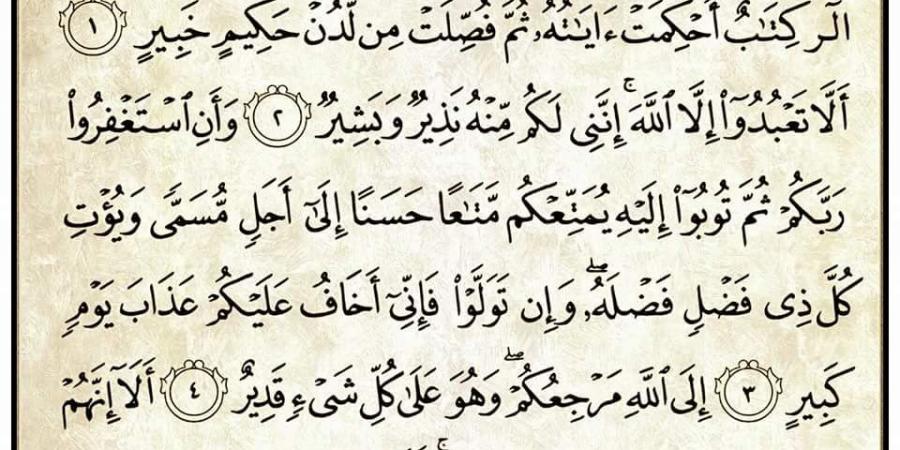 الٓر كِتَٰبٌ أُحْكِمَتْ ءَايَٰتُهُۥ ثُمَّ فُصِّلَتْ مِن لَّدُنْ حَكِيمٍ خَبِيرٍ ١
أَلَّا تَعْبُدُوٓا۟ إِلَّا ٱللَّهَ ۚ إِنَّنِى لَكُم مِّنْهُ نَذِيرٌ وَبَشِيرٌ ٢ وَأَنِ ٱسْتَغْفِرُوا۟
رَبَّكُمْ ثُمَّ تُوبُوٓا۟ إِلَيْهِ يُمَتِّعْكُم مَّتَٰعًا حَسَنًا إِلَىٰٓ أَجَلٍ مُّسَمًّى وَيُؤْتِ
كُلَّ ذِى فَضْلٍ فَضْلَهُۥ ۖ وَإِن تَوَلَّوْا۟ فَإِنِّىٓ أَخَافُ عَلَيْكُمْ عَذَابَ يَوْمٍ
كَبِيرٍ ٣ إِلَى ٱللَّهِ مَرْجِعُكُمْ ۖ وَهُوَ عَلَىٰ كُلِّ شَىْءٍ قَدِيرٌ ٤ أَلَآ إِنَّهُمْ